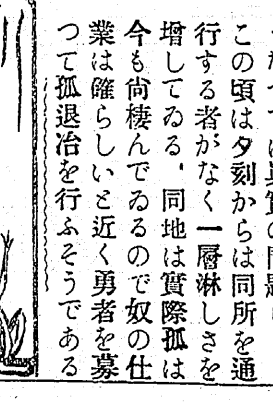 この頃は夕刻からは同所を通
行する者がなく一層淋しさを
増してゐる、同地は實際狐は
今も尙棲んでゐるので奴の仕
業は確らしいと近く勇者を募
つて狐退治を行ふそうである